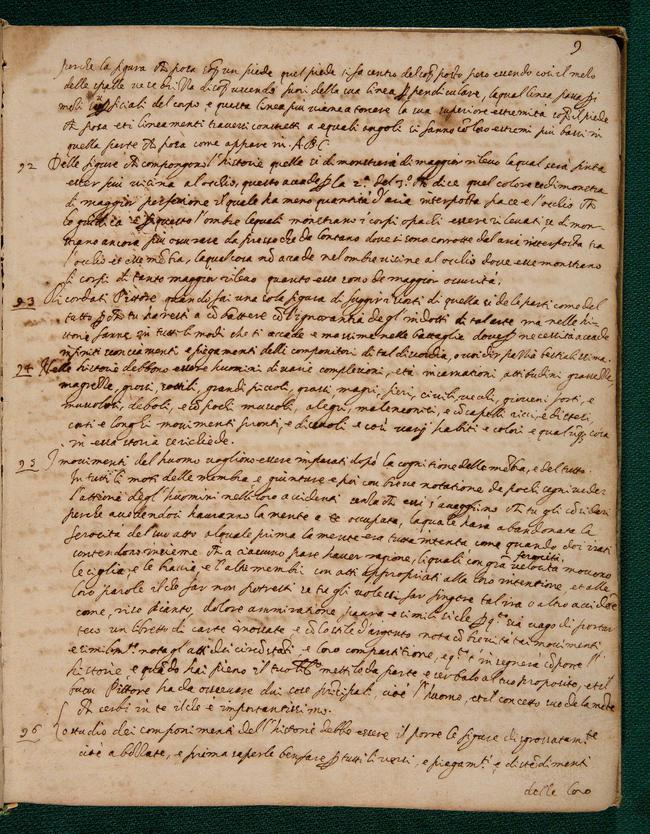 9
perche la figura ch posa sop.ª un piede quel piede si fa centro del sop.ª posto pero essendo così il melo
delle spalle vi è di essendo fuori della sua linea perpendiculare, laqual linea passa p i
melo superficiali del corpo e questa linea più viene a tenere la sua superiore estremità sop.ª il piede
ch posa et i lineamenti traversi constretti a equali angoli si fanno cō loro estremi più bassi in
quella parte ch posa come appare in. A.B.C.
92 Delle figure ch compongono l'historie quella si di monstrerà di maggior rilevo laqual sera finta
esser più vicina al ochio, questo accade p la 2.ª del 3.º ch dice quel colore si dimonstra
di maggior perfetione il quale ha meno quantità d'aria interposta fra ce e l'ochio ch
lo giudica e p questo l'ombre lequali monstrano i corpi opachi essere rilevati, si dimon-
strano ancora più oscurare da presso che da lontano dove si sono corrotte dal aria interposta fra
l'ochio et esse ombra, laqual cosa nō accade nel ombre vicine al ochio dove esse monstrano
li corpi di tanto maggior rilevo quanto esse sono de maggior oscurità.
93 Ricordati Pittore quando fai una sola figura di fuggir i scorti di quella si delle parti come del
tutto p ch tu haresti a cō battere cō l'ignorantia degl'indotti di tal arte ma nelle hi-
storie fanne in tutti li modi che ti accade e massime nelle battaglie dove p necessità accade
infiniti scorciamenti e piegamenti delli compositori di tal discordia, o vuoi dir pazzia bestialissima.
94 Nelle historie debbono essere huomini di varie complessioni, età incarnationi attitudini grassezze,
magrezze, grossi, sottili, grandi piccoli, grassi, magri, fieri, civili, vechi, giovani, forti, e
muscolosi, deboli, e cō pochi muscoli, alegri, malenconici, e cō capelli ricci, e distesi,
corti e longhi movimenti pronti, e discoli e così varij habiti e colori e qualunq; cosa
in essa storia si richiede.
95 I movimenti del huomo vogliono essere imparati dopo la cognitione delle mēbra, e del tutto.
In tutti li moti delle membra, e giunture e poi con breve notatione da pochi segni veder
l'attione degl'huomini nelli loro accidenti senza ch essi s'aveggino ch tu gli cō sideri
perche avedendosi havranno la mente a te occupata, laquale harà abandonato la
ferocità del suo atto al quale prima la mente era tutta intenta come quando doi irati
contendono insieme ch a ciascuno pare haver ragione, li quali con grā ferocità velocità movono
le ciglia e le braccia e l'altre membri con atti appropriati alla loro intentione, et alle
loro parole il che far non potresti se tu gli volessi far fingere tal ira o altro accidēte
come, riso pianto, dolore ammiratione, paura e simili si che p q.º sia vago di portar
teco un libretto di carte inossate e cō lo stile d'argento nota cō brevità tai movimenti
e similm.te nota gl'atti dei circōstāti e loro compartitione, e q.º t'insegnerà cōpore l'
historie e quādo hai pieno il tuo libro mettilo da parte e serbalo al tuo proposito, et il
buon Pittore ha da osservare dui cose principali, cioè l'huomo, et il concetto suo de la mēte
ch serbi in te il che è importantissimo.
96 Lo studio dei componimenti dell'historie debbe essere il porre le figure disgrossatam.te
cioè abbozzate, e prima saperle ben fare p tutti li versi, e piegam.ti, e distēdimenti
delle loro